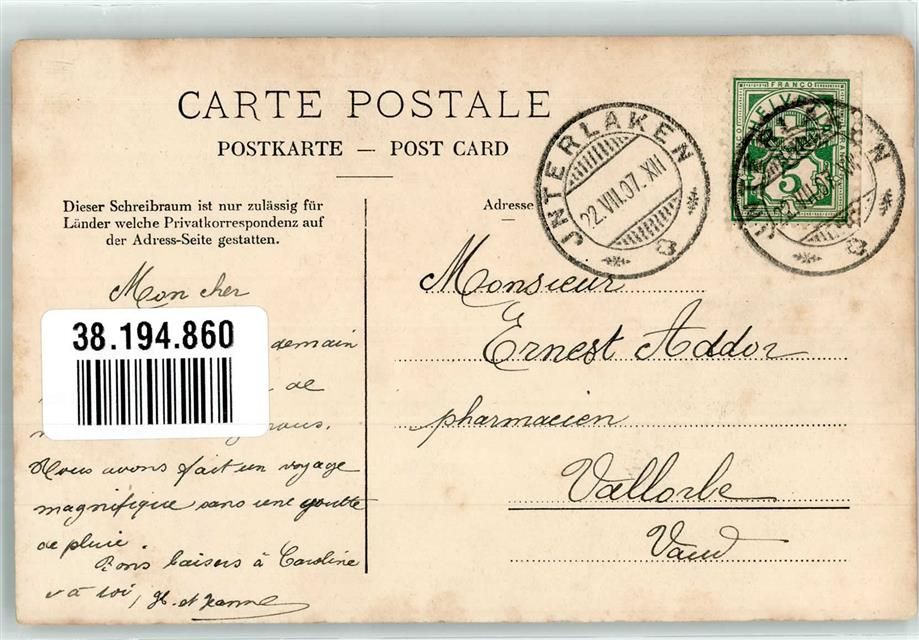 CARTE POSTALE
POSTKARTE — POST CARD
Dieser Schreibraum ist nur zulässig für
Länder welche Privatkorrespondenz auf
der Adress-Seite gestatten.
Adresse
JNTERLAKEN
22.VII.07.XII
FRANCO
HELVETIA
5
JNTERLAKEN
22.VII.07
Mon cher
38.194.860
demain
de
nous.
Nous avons fait un voyage
magnifique sans une goutte
de pluie
Bons baisers à Caroline
et à toi, H. et Jeanne
Monsieur
Ernest Addor
pharmacien
Vallorbe
Vaud